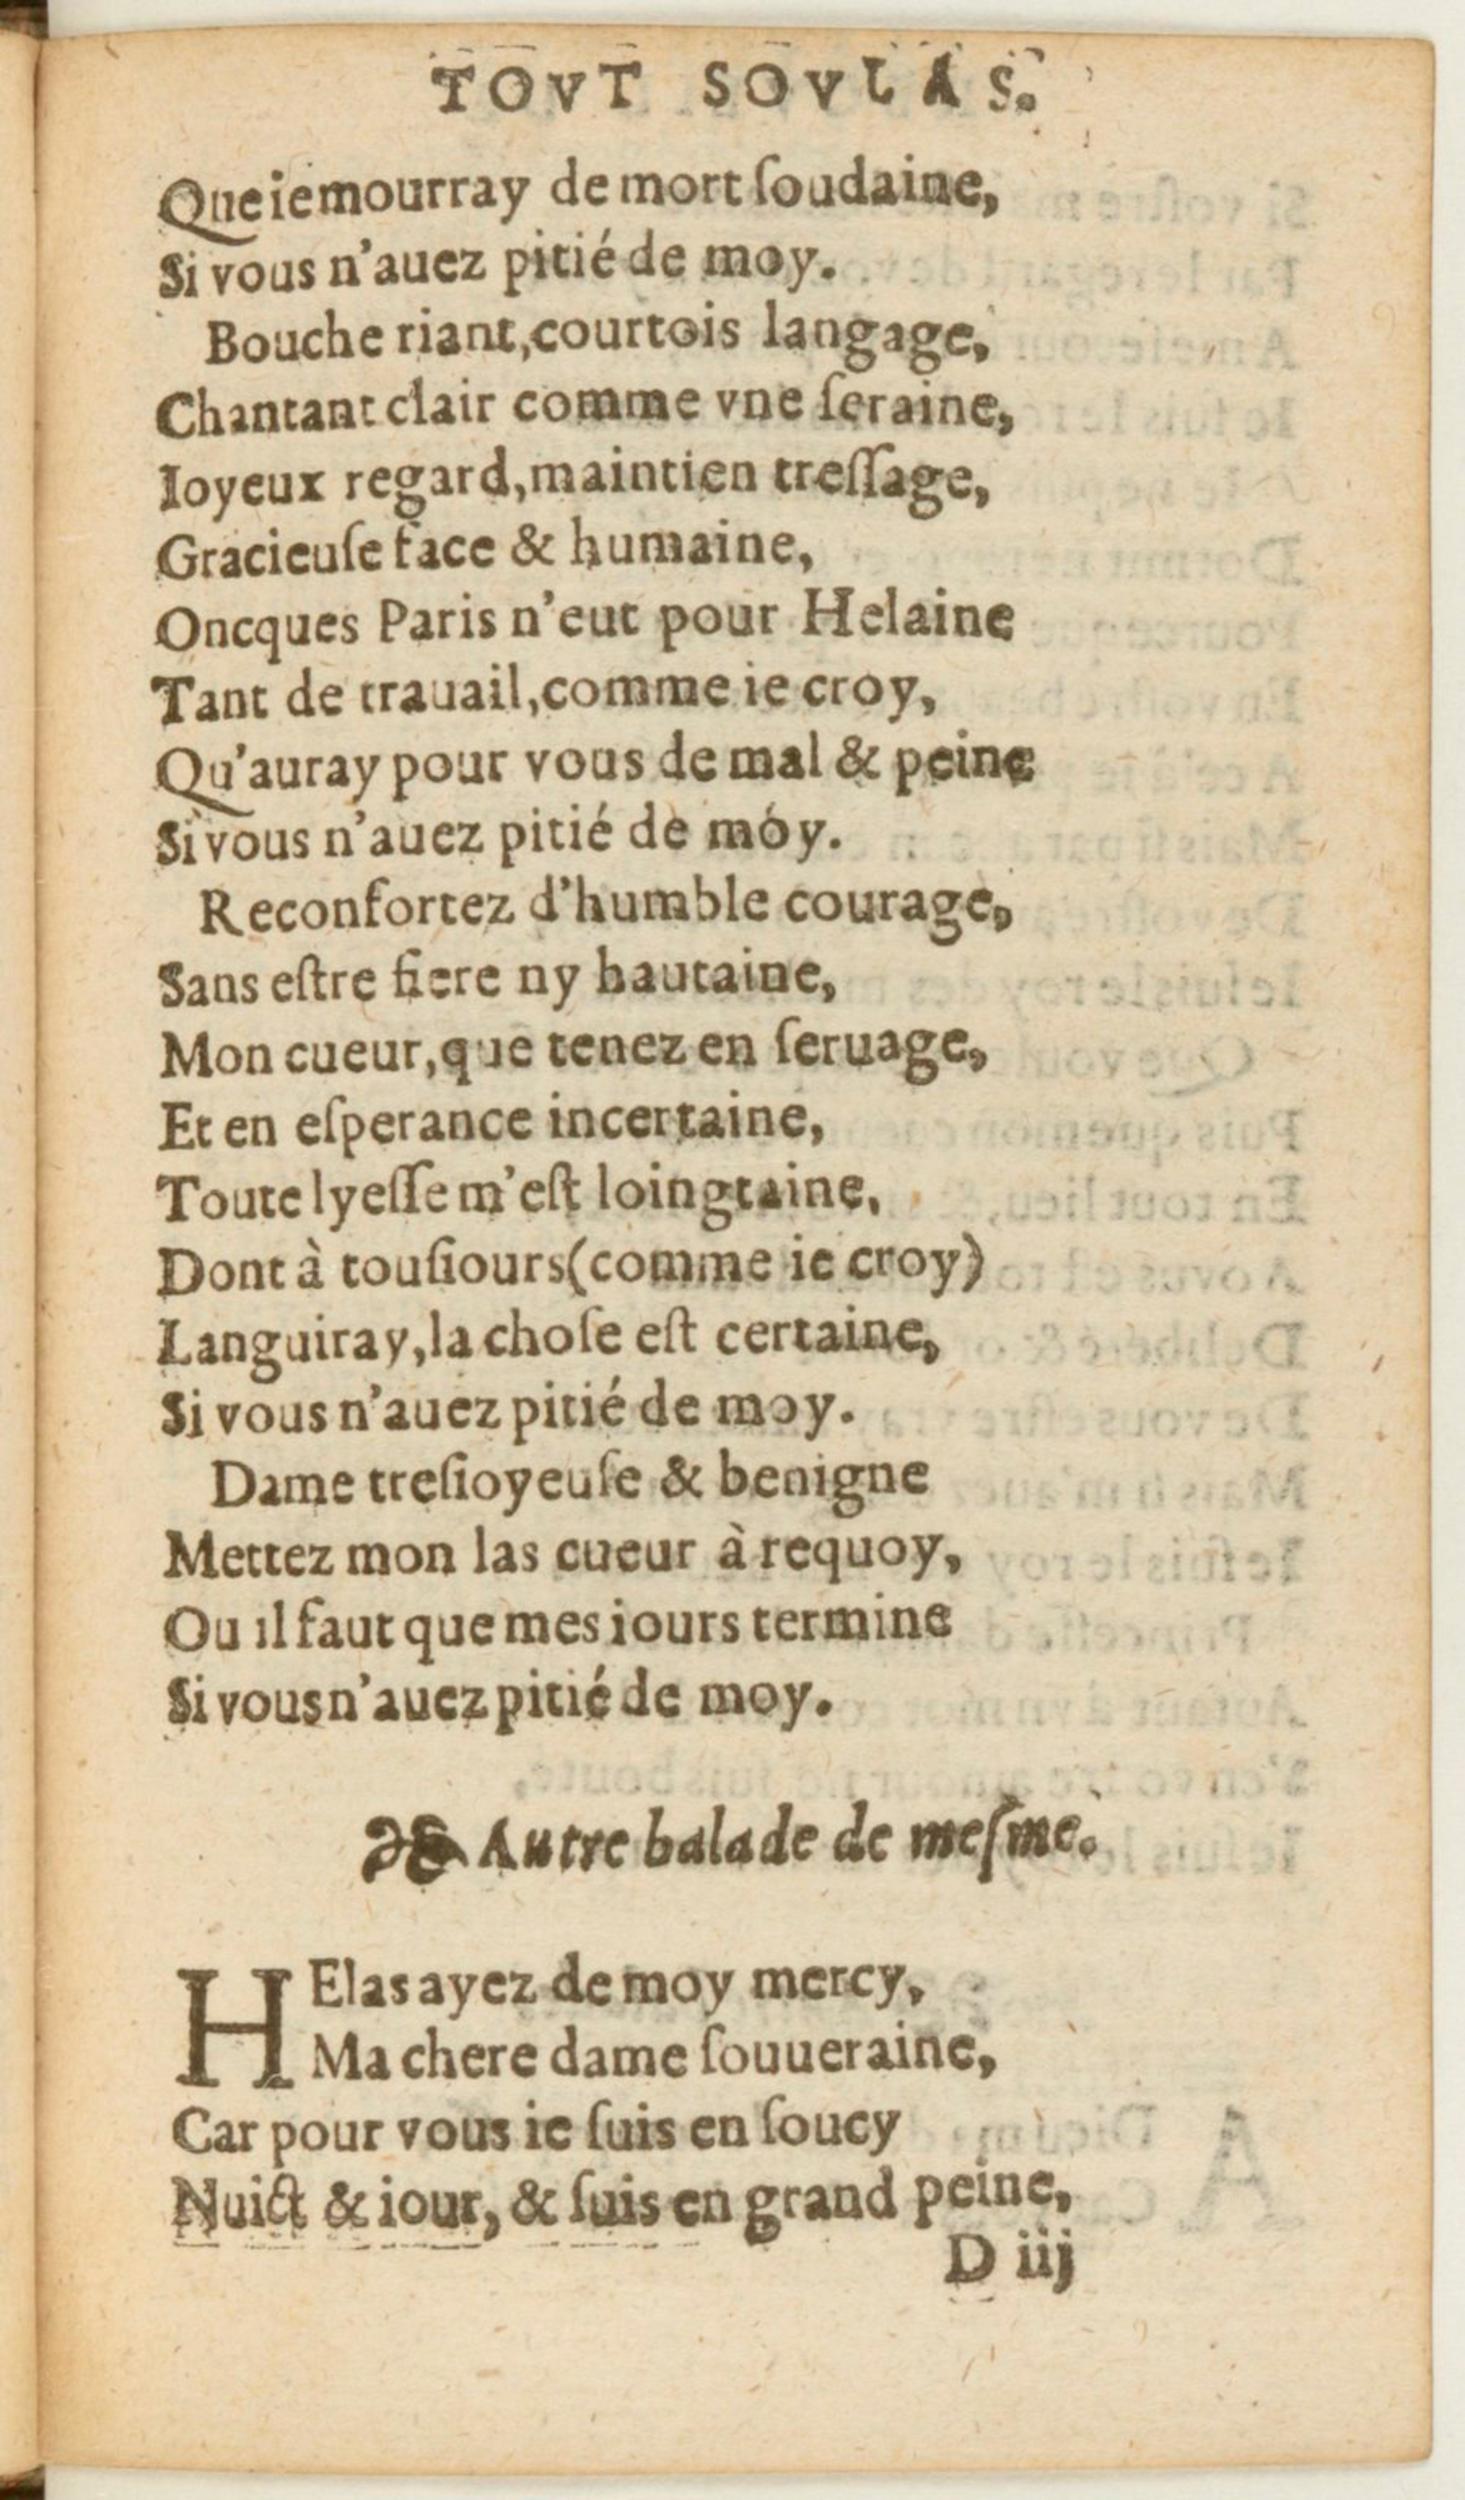 TOVT SOVLAS.
Que ie mourray de mort ſoudaine,
Si vous n'auez pitié de moy.
Bouche riant, courtois langage,
Chantant clair comme vne ſeraine,
Ioyeux regard, maintien treſſage,
Gracieuſe face & humaine,
Oncques Paris n'eut pour Helaine
Tant de trauail, comme ie croy,
Qu'auray pour vous de mal & peine
Si vous n'auez pitié de moy.
Reconfortez d'humble courage,
Sans eſtre fiere ny hautaine,
Mon cueur, que tenez en ſeruage,
Et en eſperance incertaine,
Toute lyeſſe m'eſt loingtaine,
Dont à touſiours (comme ie croy)
Languiray, la choſe eſt certaine,
Si vous n'auez pitié de moy.
Dame treſioyeuſe & benigne
Mettez mon las cueur à requoy,
Ou il faut que mes iours termine
Si vous n'auez pitié de moy.
Autre balade de meſme.
HElas ayez de moy mercy,
Ma chere dame ſouueraine,
Car pour vous ie ſuis en ſoucy
Nuict & iour, & ſuis en grand peine,
D iij